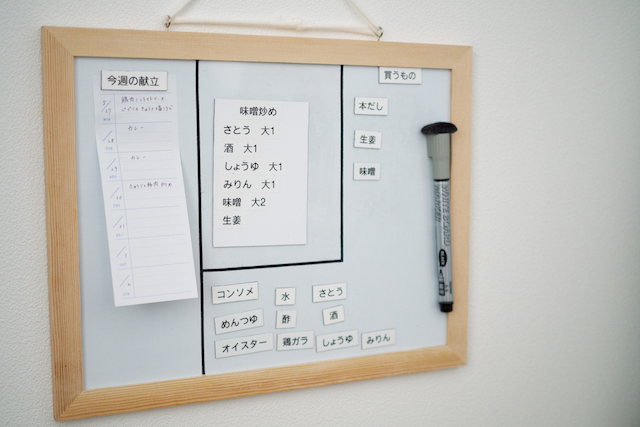 今週の献立
カレー
カレー
味噌炒め
さとう　大1
酒　大1
しょうゆ　大1
みりん　大1
味噌　大2
生姜
買うもの
本だし
生姜
味噌
コンソメ
水
さとう
めんつゆ
酢
酒
オイスター
鶏ガラ
しょうゆ
みりん